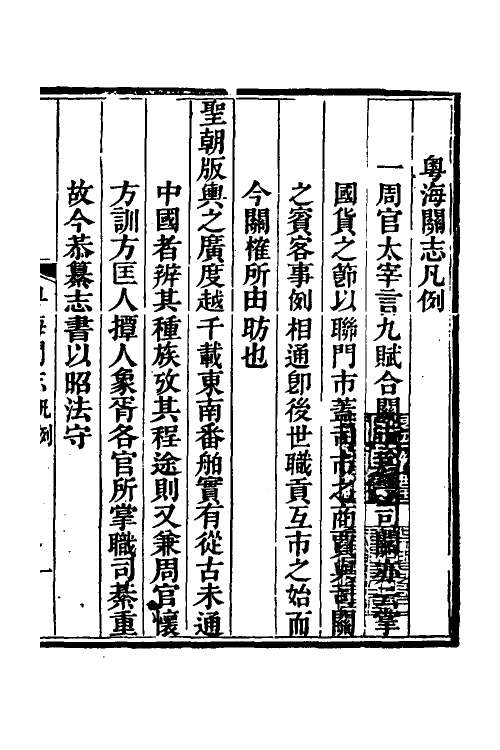 粵海關志凡例
一周官太宰言九賦合關市司關亦云掌
國貨之節以聯門市蓋司市之商賈與司關
之賓客事例相通卽後世職貢互市之始而
今關榷所由昉也
聖朝版輿之廣度越千載東南番舶實有從古未通
中國者辨其種族攷其程途則又兼周官懷
方訓方匡人撢人象胥各官所掌職司綦重
故今恭纂志書以昭法守
粵海關志凡例
一